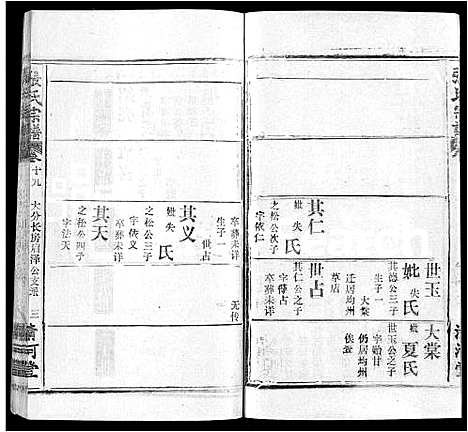 世玉
妣失氏
其德公三子
生子一
大棠
迁居均州
草店
大棠
妣夏氏
世玉公之子
字贻甘
仍居均州
其仁
妣失氏
之松公次子
字依仁
世占
其仁公之子
字傅占
卒葬未详
卒葬未详
生子一
世占
无传
其义
妣失氏
之松公三子
字依义
卒葬未详
其天
之松公四子
字法天
張氏宗譜
卷十九
大分长房启泽公支系
三
清河堂